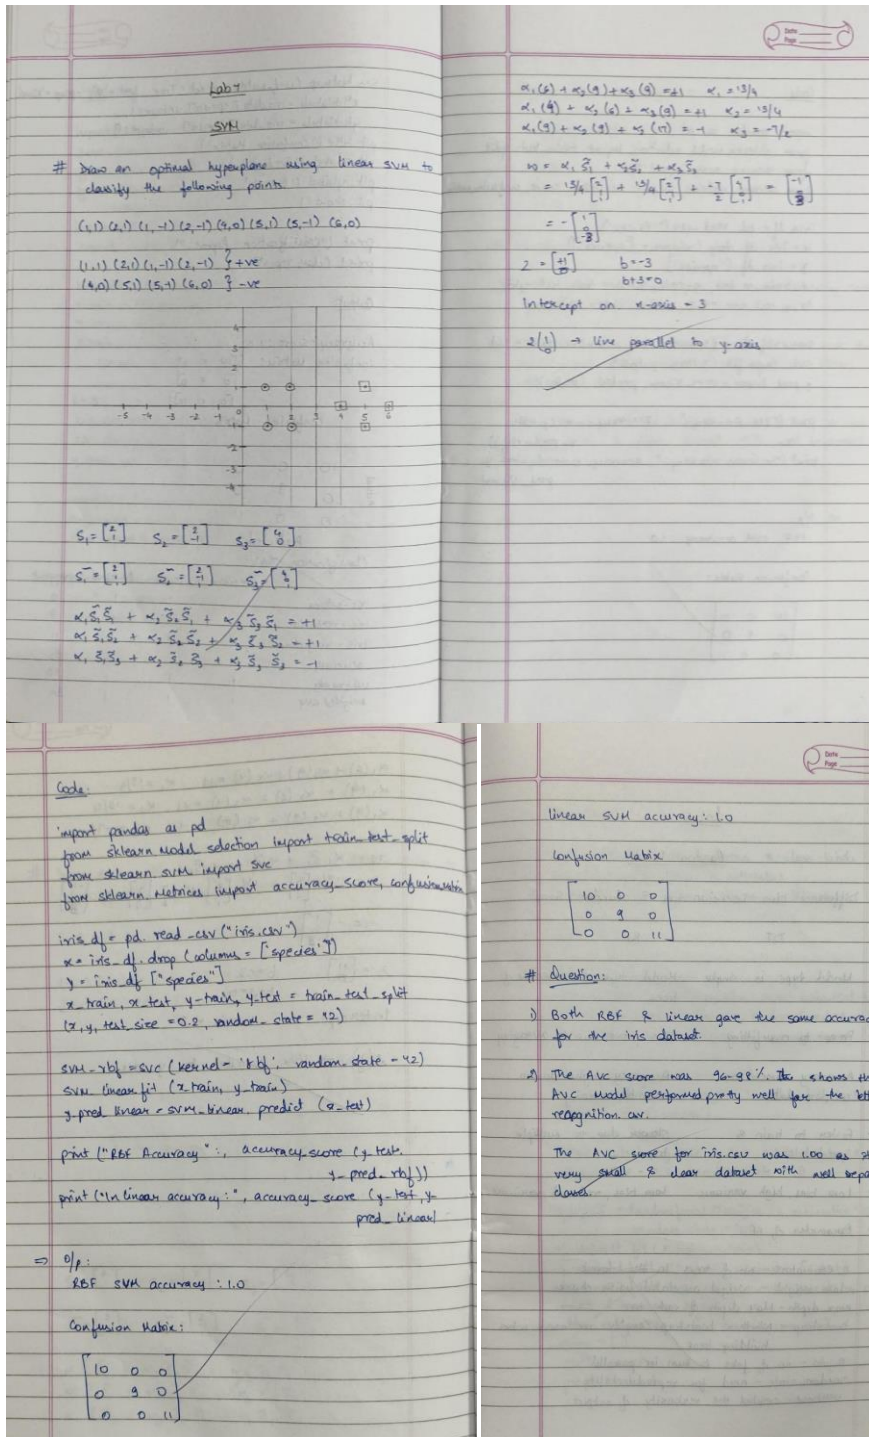 Date
Page
Lab 7
SVM
# Draw an optimal hyperplane using linear SVM to
classify the following points
(1,1) (2,1) (1,-1) (2,-1) (4,0) (5,1) (5,-1) (6,0)
(1,1) (2,1) (1,-1) (2,-1) } +ve
(4,0) (5,1) (5,-1) (6,0) } -ve
4
3
2
1
-5 -4 -3 -2 -1 0 1 2 3 4 5 6
-1
-2
-3
-4
S₁ = [2 1] S₂ = [2 -1] S₃ = [4 0]
S̃₁ = [2 1 1] S̃₂ = [2 -1 1] S̃₃ = [4 0 1]
α₁ S̃₁ S̃₁ + α₂ S̃₂ S̃₁ + α₃ S̃₃ S̃₁ = +1
α₁ S̃₁ S̃₂ + α₂ S̃₂ S̃₂ + α₃ S̃₃ S̃₂ = +1
α₁ S̃₁ S̃₃ + α₂ S̃₂ S̃₃ + α₃ S̃₃ S̃₃ = -1
α₁(6) + α₂(4) + α₃(9) = +1 α₁ = 13/4
α₁(4) + α₂(6) + α₃(9) = +1 α₂ = 13/4
α₁(9) + α₂(9) + α₃(17) = -1 α₃ = -7/2
w = α₁ S̃₁ + α₂ S̃₂ + α₃ S̃₃
= 13/4 [2 1 1] + 13/4 [2 -1 1] + -7/2 [4 0 1] = [-1 0 3]
= -[1 0 -3]
2 = [+1 0] b = -3
b+3=0
Intercept on x-axis = 3
2(1 0) → line parallel to y-axis
Code:
import pandas as pd
from sklearn model selection import train_test_split
from sklearn SVM import SVC
from sklearn metrices import accuracy_score, confusion matrix
iris_df = pd. read_csv ("iris.csv")
x = iris_df. drop (columns = ['species'])
y = iris_df ["species"]
x_train, x_test, y-train, y-test = train_test_split
(x, y, test_size = 0.2, random_state = 42)
SVM_rbf = SVC (kernel = 'rbf', random_state = 42)
SVM_linear fit (x train, y_train)
y_pred linear = SVM_linear. predict (x_test)
print ("RBF Accuracy":, accuracy_score (y_test,
y_pred_rbf))
print ("\n linear accuracy:", accuracy_score (y_test, y-
pred_linear)
⇒ O/p:
RBF SVM accuracy : 1.0
Confusion Matrix:
[10 0 0
0 9 0
0 0 11]
Date
Page
linear SVM accuracy: 1.0
Confusion Matrix
[10 0 0
0 9 0
0 0 11]
# Question:
1) Both RBF & linear gave the same accurac
for the iris dataset.
2) The AVC score was 96-98%. It shows th
AVC model performed pretty well for the lett
recognition csv.
The AVC score for iris.csv was 1.00 as
very small & clear dataset with well sepa
classes.